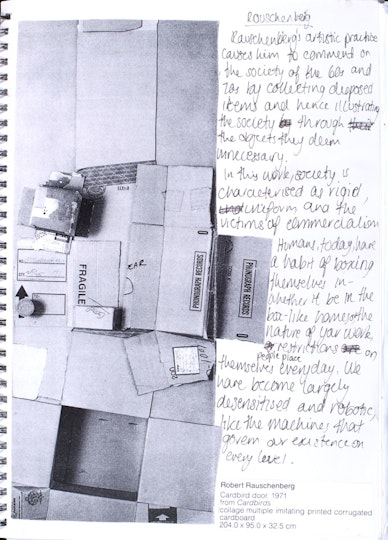 Rauschenberg
Rauschenberg's artistic practice
causes him to comment on
the society of the 60s and
70s by collecting disposed
items and hence illustrating
the society through
the objects they deem
unnecessary.
In this work, society is
characterised as rigid,
uniform and the
victims of commercialism
Humans, today, have
a habit of boxing
themselves in -
whether it be in the
box-like homes, the
nature of your work
restrictions on
people place
themselves everyday. We
have become largely
desensitised and robotic,
like the machines that
govern our existence on
every level.
FRAGILE
EAR
PHONOGRAPH RECORDS
PHONOGRAPH RECORDS
Robert Rauschenberg
Cardbird door 1971
from Cardbirds
collage multiple imitating printed corrugated
cardboard
204.0 x 95.0 x 32.5 cm